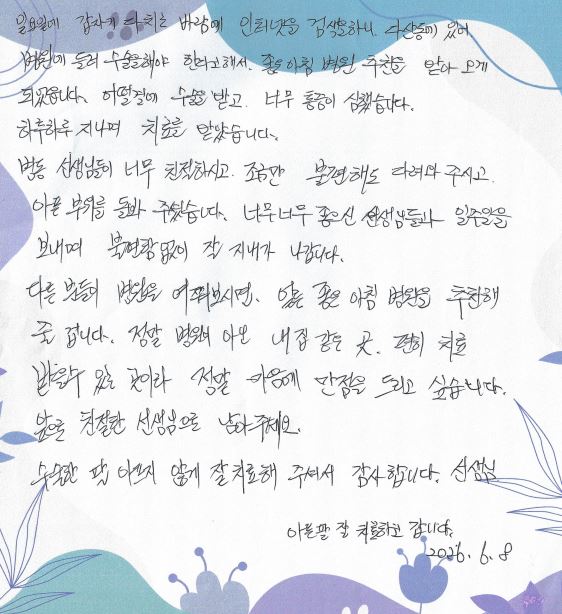 일요일에 갑자기 다치는 바람에 인터넷을 검색을하니, 다산동에 있어
병원에 들러 수술을해야 한다고해서. 좋은아침 병원 추천을 받아 오게
되었습니다. 어떨결에 수술을 받고. 너무 통증이 심했습니다.
하루하루 지나며 치료를 받았습니다.
병동 선생님들이 너무 친절하시고. 조금만 불편해도 다려와 주시고.
아픈 부위를 돌봐 주셨습니다. 너무너무 좋으신 선생님들과 일주일을
보내며 불편함없이 잘 지내가 나갑니다.
다른 분들이 병원을 여쭤보시면. 않은 좋은 아침 병원을 추천해
줄 겁니다. 정말 병원이 아닌 내집 같은 곳. 편히 치료
받을수 있는 곳이라 정말 마음에 만점을 드리고 싶습니다.
앞으로 친절한 선생님으로 남아주세요.
수술한 팔 아프지 않게 잘치료해 주셔서 감사합니다. 선생님
아픈팔 잘 치료하고 갑니다.
2026. 6. 8